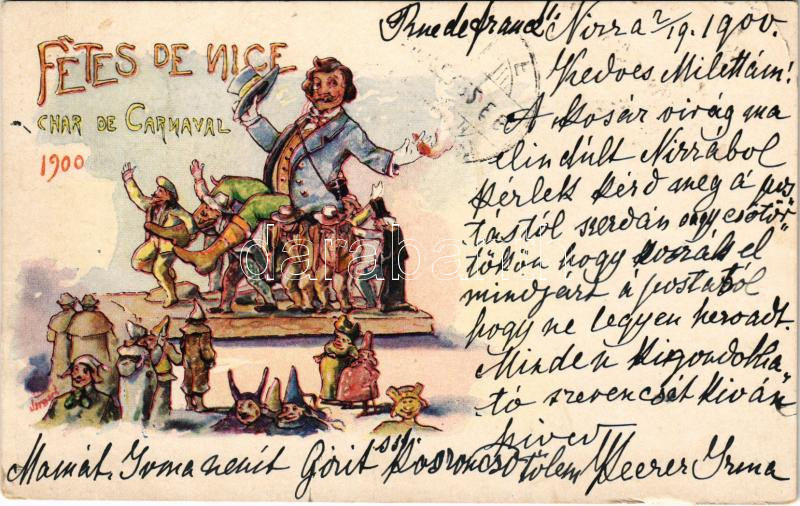 FÊTES DE NICE
CHAR DE CARNAVAL
1900
Nizza 2/19. 1900.
Kedves
A kosár virág ma
elindúlt Nizzából
kérlek kérd meg á pos
tástól szerdán vagy csötör
tökön hogy hozzák el
mindjárt á postából
hogy ne legyen
Minden kigondolha
tó szerencsét kíván
híved
Mamát. Irma nénit Györit tőlem Irma
darabanth